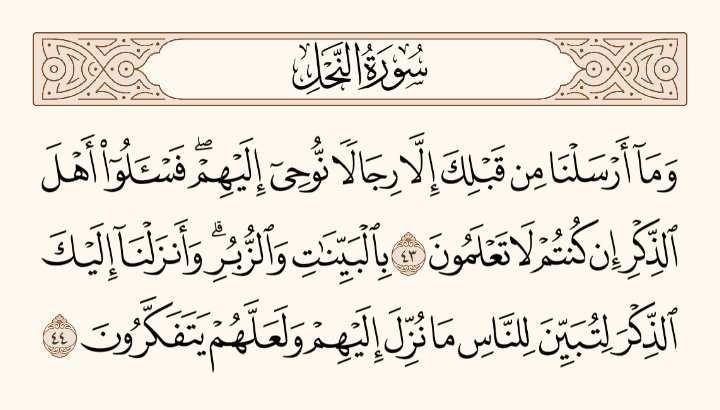 سُورَةُ النَّحْلِ
وَمَآ أَرْسَلْنَا مِن قَبْلِكَ إِلَّا رِجَالًا نُّوحِىٓ إِلَيْهِمْ ۖ فَسْـَٔلُوٓا۟ أَهْلَ
ٱلذِّكْرِ إِن كُنتُمْ لَا تَعْلَمُونَ ٤٣ بِٱلْبَيِّنَـٰتِ وَٱلزُّبُرِ ۗ وَأَنزَلْنَآ إِلَيْكَ
ٱلذِّكْرَ لِتُبَيِّنَ لِلنَّاسِ مَا نُزِّلَ إِلَيْهِمْ وَلَعَلَّهُمْ يَتَفَكَّرُونَ ٤٤